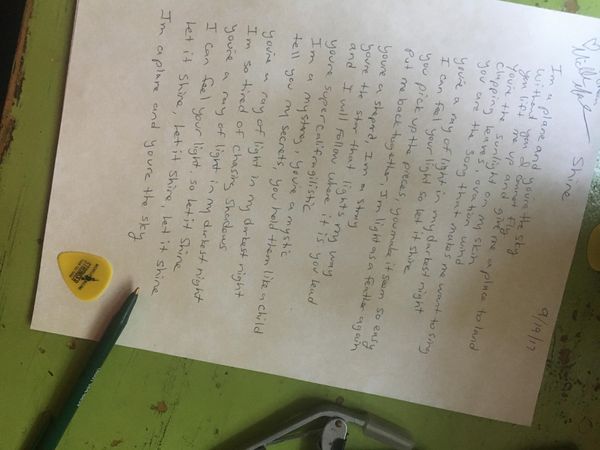 Shine
9/19/17
I'm a plane and you're the sky
without you I cannot fly
you lift me up and give me a place to land
you're the sunlight on my skin
clapping leaves, ovation wind
you are the song that makes me want to sing
you're a ray of light in my darkest night
I can feel your light so let it shine
you pick up the pieces, you make it seem so easy
put me back together, I'm light as a feather again
you're a shepard, I'm a stray
you're the star that lights my way
and I will follow where it is you lead
you're supercalifragilistic
I'm a mystery, you're a mystic
tell you my secrets, you hold them like a child
you're a ray of light in my darkest night
I'm so tired of chasing shadows
you're a ray of light in my darkest night
I can feel your light, so let it shine
let it shine, let it shine, let it shine
I'm a plane and you're the sky